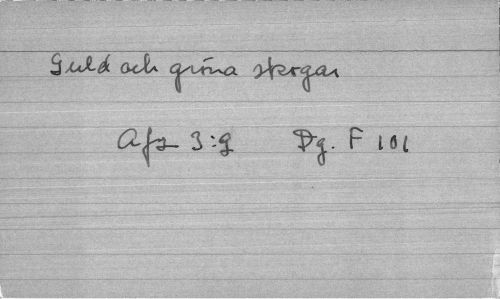 Guld och gröna skogar
Afz 3:9 Dg. F 101